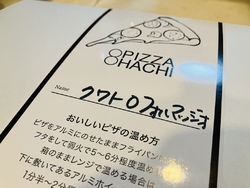 PIZZA
OHACHI
Name
クワトロフォルマッジオ
おいしいピザの温め方
ピザをアルミにのせたままフライパン
フタをして弱火で5〜6分程度温め
箱のままレンジで温める場合は
下に敷いてあるアルミホイ
1分半〜2分